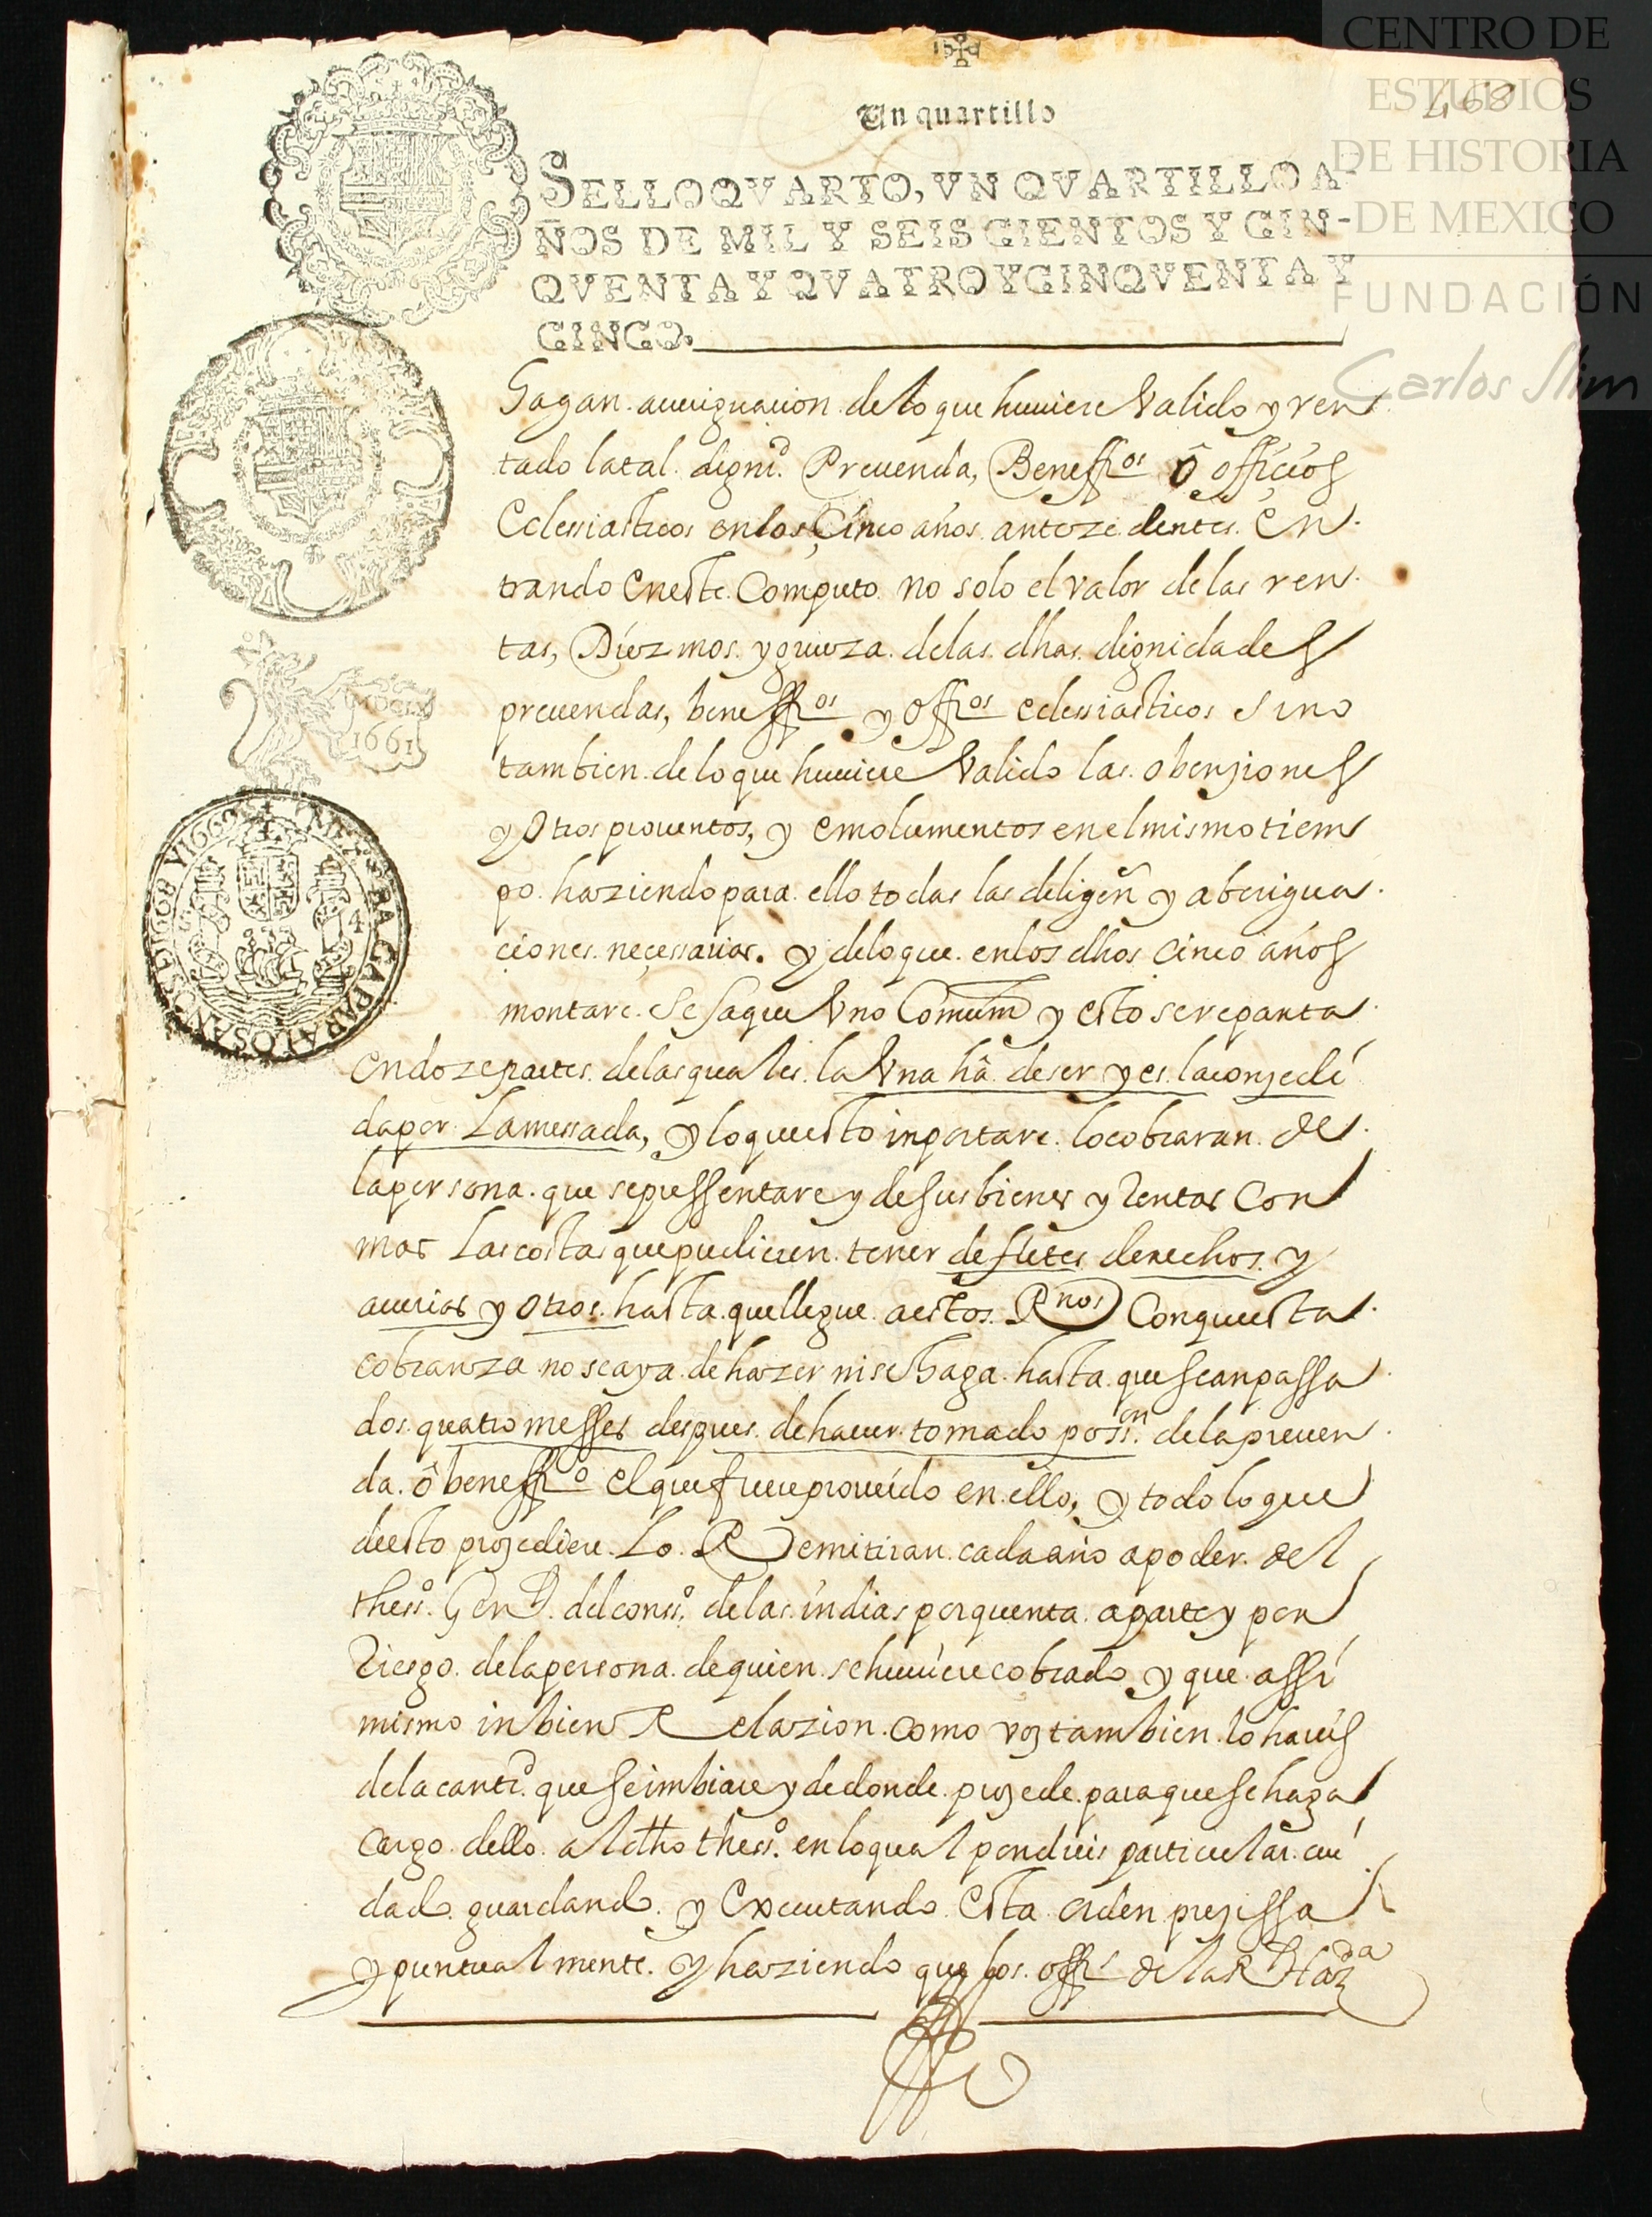 Un quartillo
468
SELLO QVARTO, VN QVARTILLO A-
ÑOS DE MIL Y SEISCIENTOS Y CIN-
QVENTA Y QVATRO Y CINQVENTA Y
CINCO.
CENTRO DE
ESTUDIOS
DE HISTORIA
DE MEXICO
FUNDACIÓN
Carlos Slim
1661
hagan aueriguacion de lo que huuiere Valido y ren
tado la tal dignid. Preuenda, Beneffios ô officios
Eclesiasticos en los Cinco años antezedentes En
trando en este Computo no solo el valor de las ren
tas, Diezmos y grueza de las dhas dignidades
preuendas, beneffios y offios eclesiasticos sino
tambien de lo que huuiere Valido las obenziones
y Otros prouentos, y emolumentos en el mismo tiem
po haziendo para ello todas las deligen y aberigua
ciones neçessarias. y de lo que en los dhos cinco años
montare se saque Vno Comum y esto se reparta
en doze partes de las quales la Vna hâ de ser y es la conzedi
da por La messada, y lo que esto inportare lo cobraran de
la persona que se pressentare y de sus bienes y Rentas Con
mas Las costas que pudieren tener de fletes derechos y
auerias y otros hasta que llegue a estos Rnos Con que esta
cobranza no se aya de hazer ni se haga hasta que sean passa
dos quatro messes despues de hauer tomado possn. de la preuen
da ô beneffio el que fuere proueido en ello, y todo lo que
de esto prozediere Lo Remitiran cada año a poder del
thesso. Genl. del conssº. de las indias por quenta aparte y por
Riesgo de la persona de quien se huuiere cobrado y que assi
mismo inbien Relazion como vos tambien lo hareis
de la cantd. que se imbiare y de donde prozede para que se haga
Cargo dello al dho thesso. en lo qual pondreis particular cui
dado guardando y Executando Esta orden prezissa
y puntualmente. y haziendo que los offs de la R Hazda